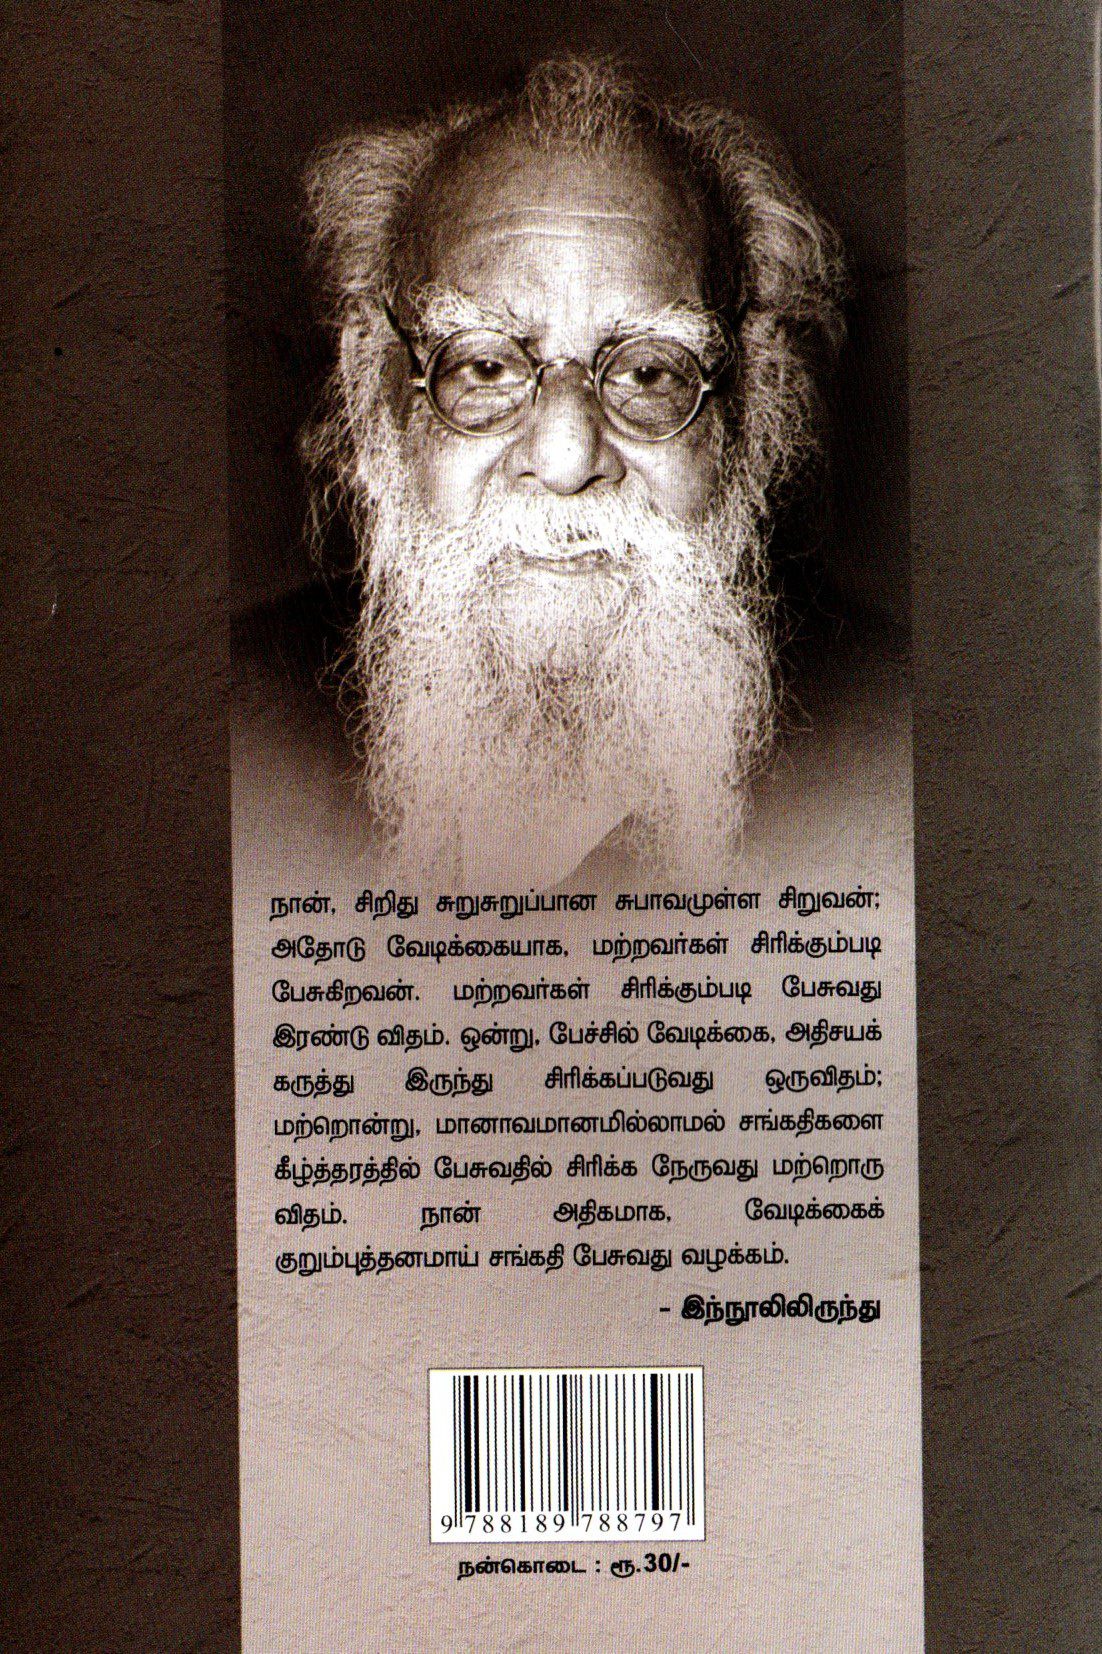 நான், சிறிது சுறுசுறுப்பான சுபாவமுள்ள சிறுவன்;
அதோடு வேடிக்கையாக, மற்றவர்கள் சிரிக்கும்படி
பேசுகிறவன். மற்றவர்கள் சிரிக்கும்படி பேசுவது
இரண்டு விதம். ஒன்று, பேச்சில் வேடிக்கை, அதிசயக்
கருத்து இருந்து சிரிக்கப்படுவது ஒருவிதம்;
மற்றொன்று, மானாவமானமில்லாமல் சங்கதிகளை
கீழ்த்தரத்தில் பேசுவதில் சிரிக்க நேருவது மற்றொரு
விதம். நான் அதிகமாக, வேடிக்கைக்
குறும்புத்தனமாய் சங்கதி பேசுவது வழக்கம்.
- இந்நூலிலிருந்து
9 788189 788797
நன்கொடை : ரூ.30/-